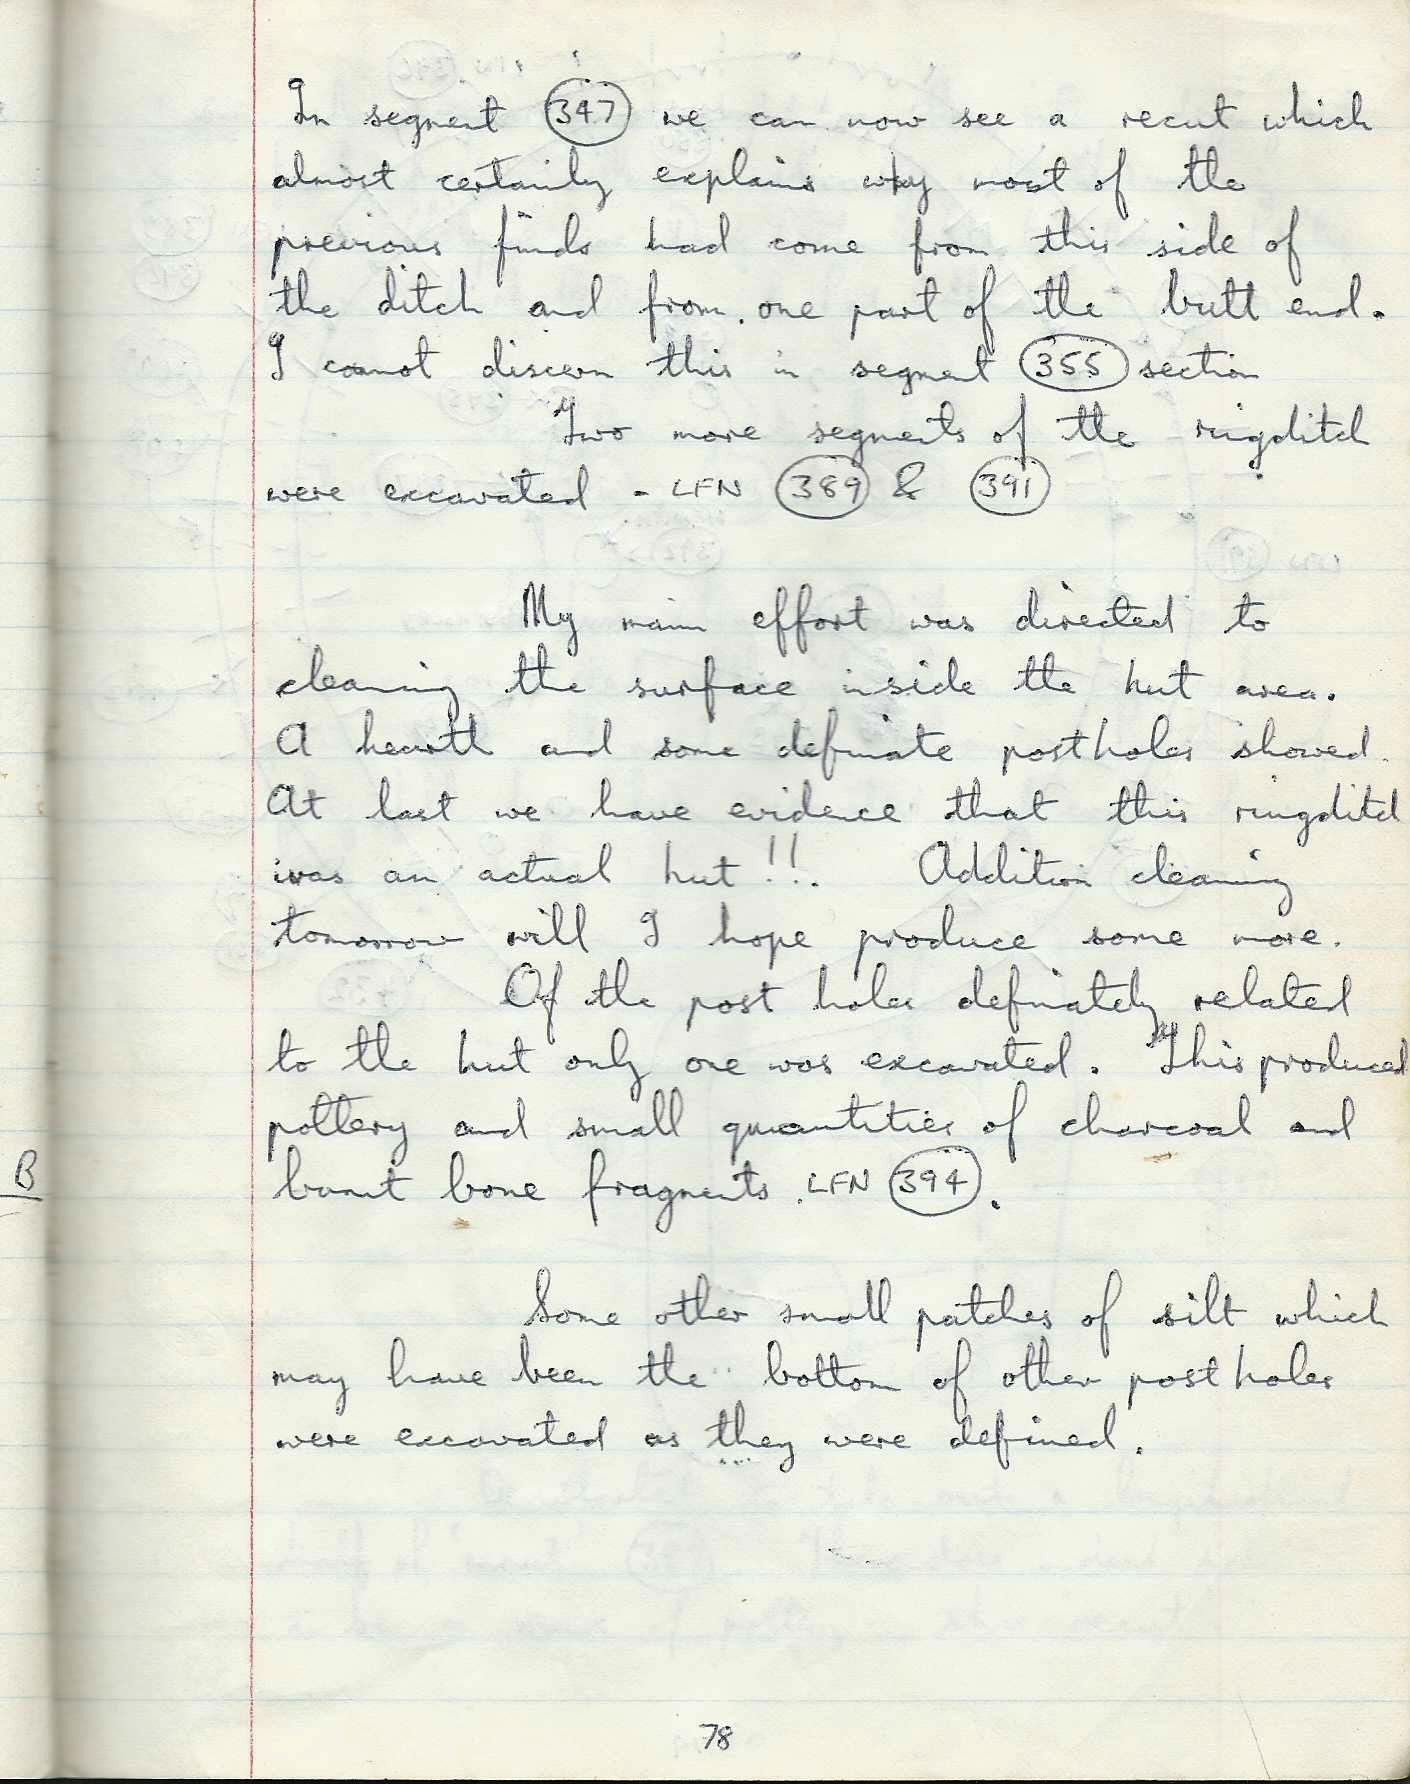 In segment (347) we can now see a recut which
almost certainly explains why most of the
previous finds had come from this side of
the ditch and from one part of the butt end.
I cannot discern this in segment (355) section
Two more segments of the ringditch
were excavated - LFN (389) & (391)
My main effort was directed to
cleaning the surface inside the hut area.
A hearth and some definate postholes showed.
At last we have evidence that this ringditch
was an actual hut!!. Addition cleaning
tomorrow will I hope produce some more.
Of the post holes definately related
to the hut only one was excavated. This produced
pottery and small quantities of charcoal and
burnt bone fragments. LFN (394).
B
Some other small patches of silt which
may have been the bottom of other post holes
were excavated as they were defined.
78